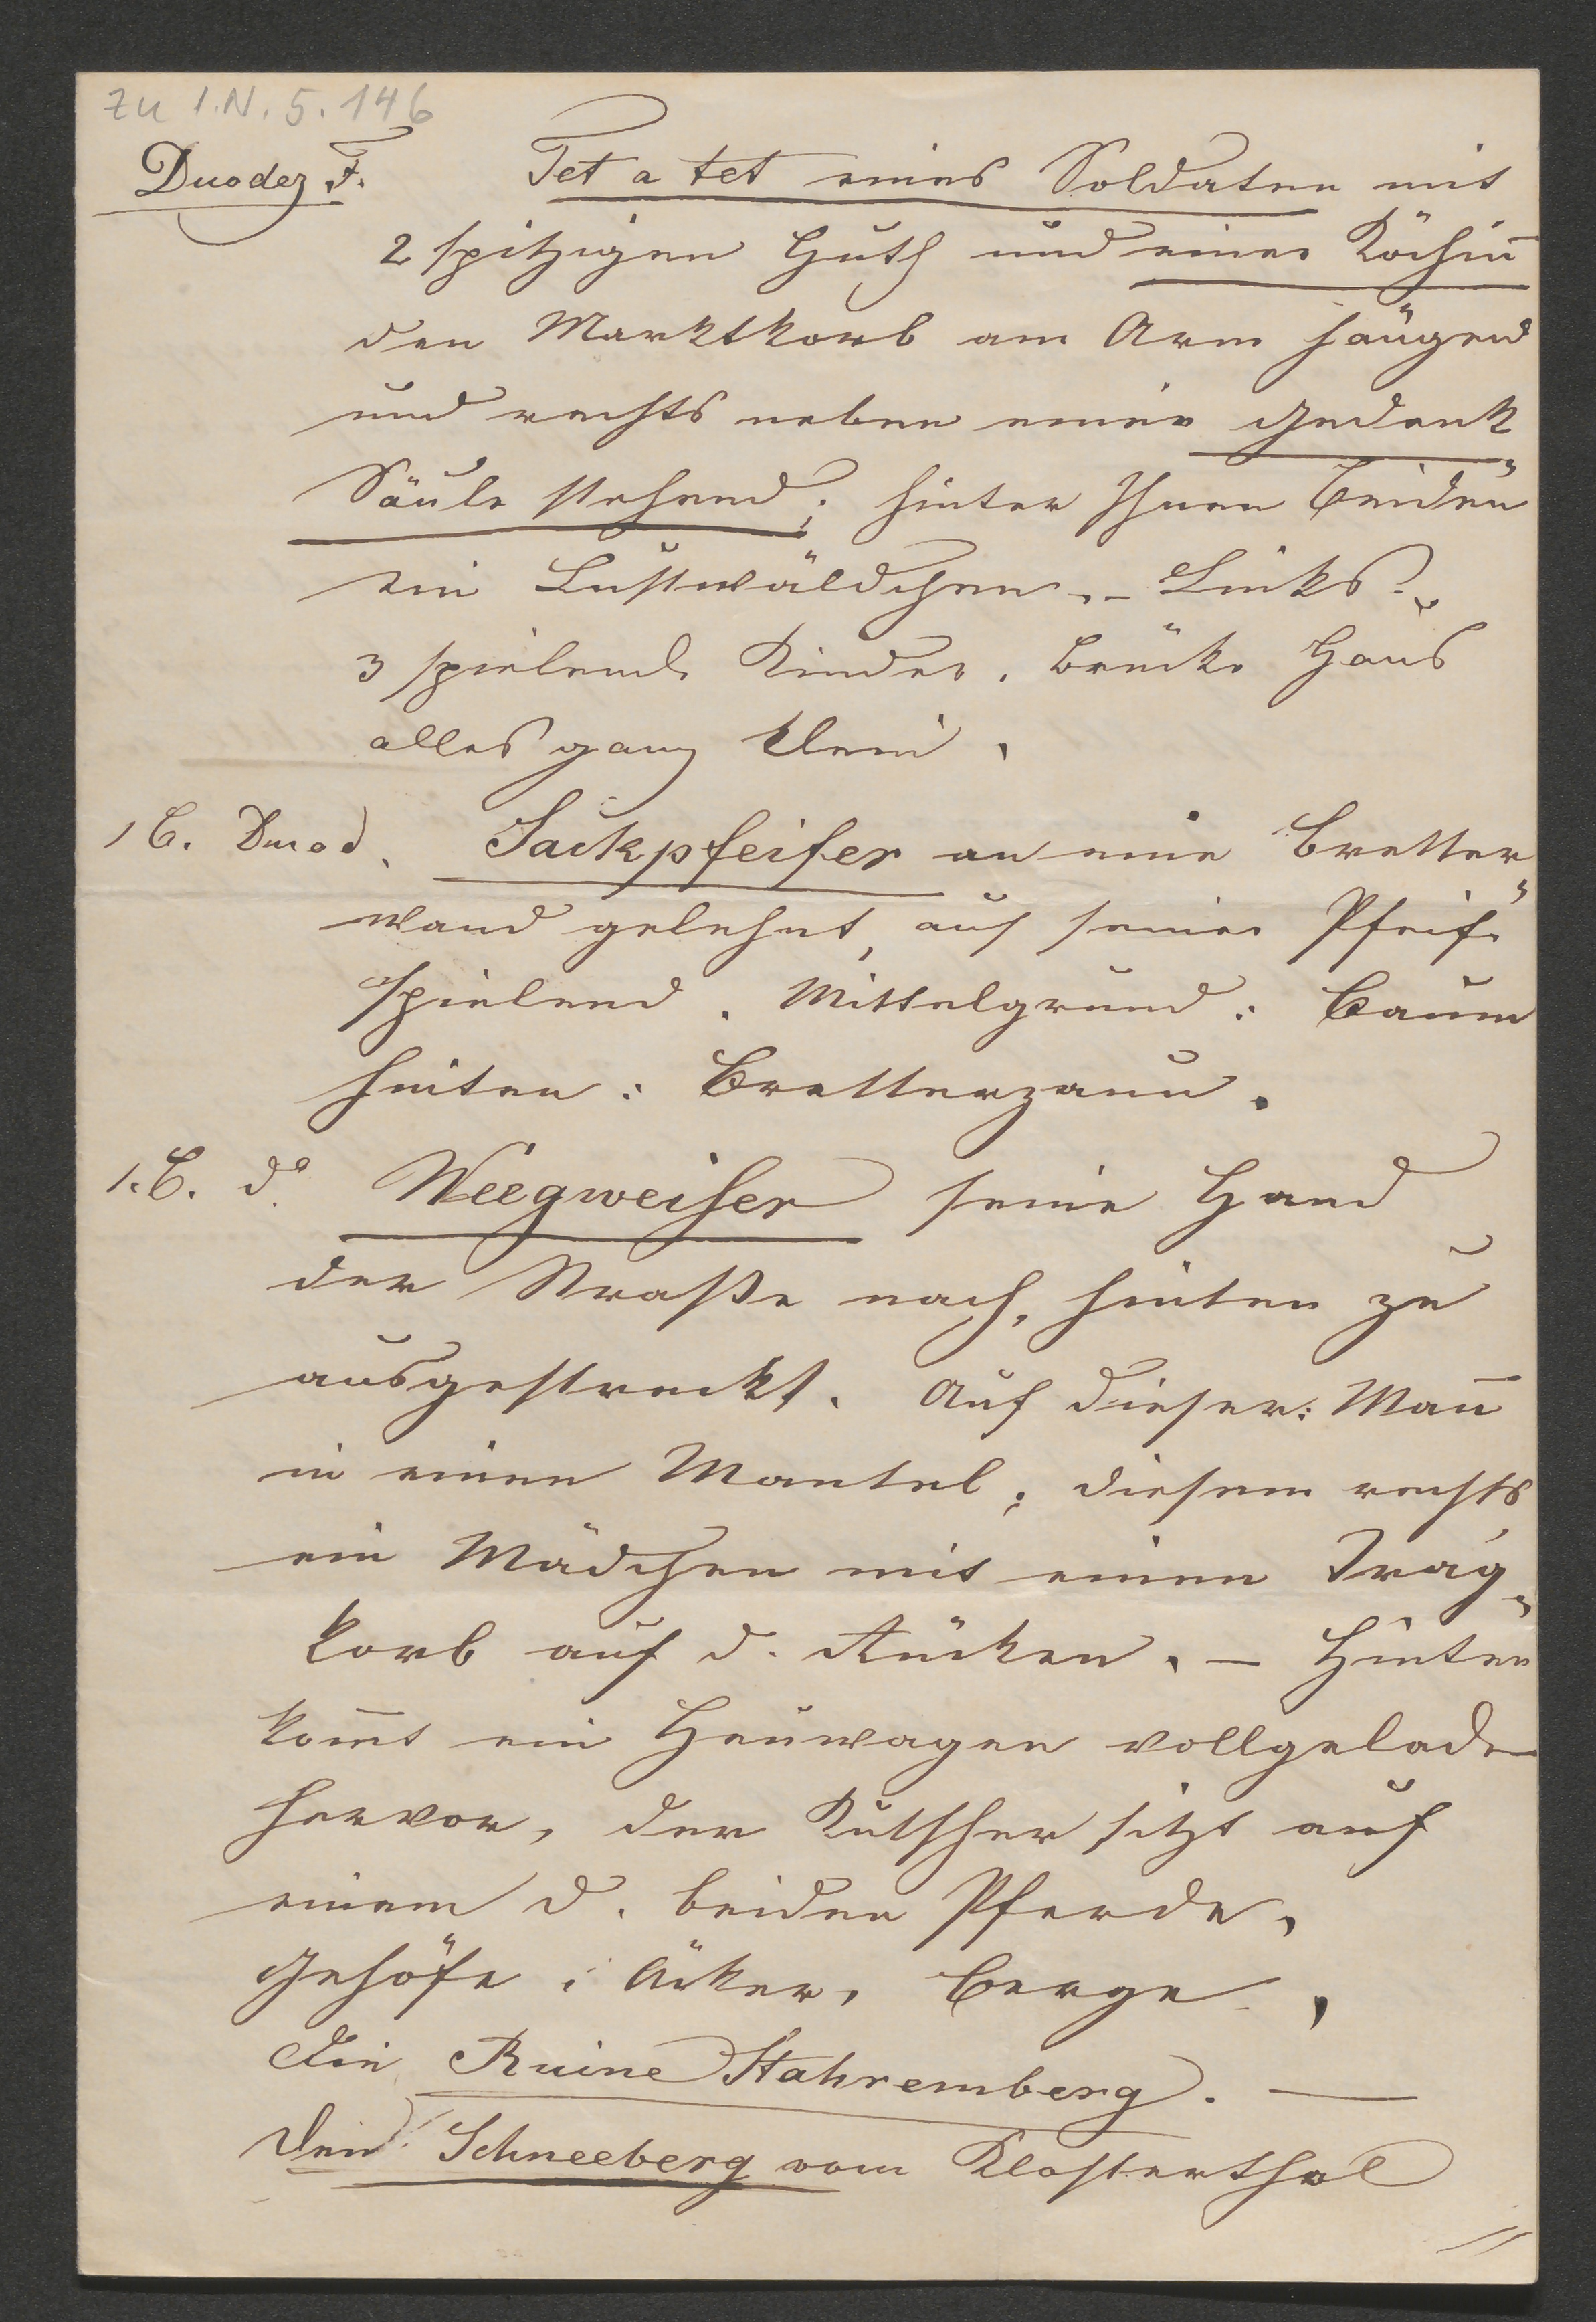 zu I.N. 5.146
Duodez F. Tet a tet eines Soldaten mit
2 spitzigen Huth und einer Köchin̄
den Marktkorb am Arm hängend
und rechts neben einer Gedenk
Säule stehend; hinter Ihnen beiden
ein Lustwäldchen. – Links:
3 spielende Kinder. Brücke Haus
alles ganz klein.
1 B. Duod. Sackpfeifer an eine Bretter„
wand gelehnt, auf seiner Pfeife
spielend. Mittelgrund: Baum
hinten: Bretterzaun.
1. B. do Weegweiser seine Hand
der Straße nach, hinten zu
ausgestreckt. Auf dieser: Man̄
in einen Mantel; diesem rechts
ein Mädchen mit einen Trag„
korb auf d. Rücken. – Hinten
kom̄t ein Heuwagen vollgeladen
hervor, der Kutscher sitzt auf
einem d. beiden Pferde,
Gehöfe; Äcker, Berge,
Die Ruine Stahremberg. —
Den Schneeberg vom Klosterthal
//